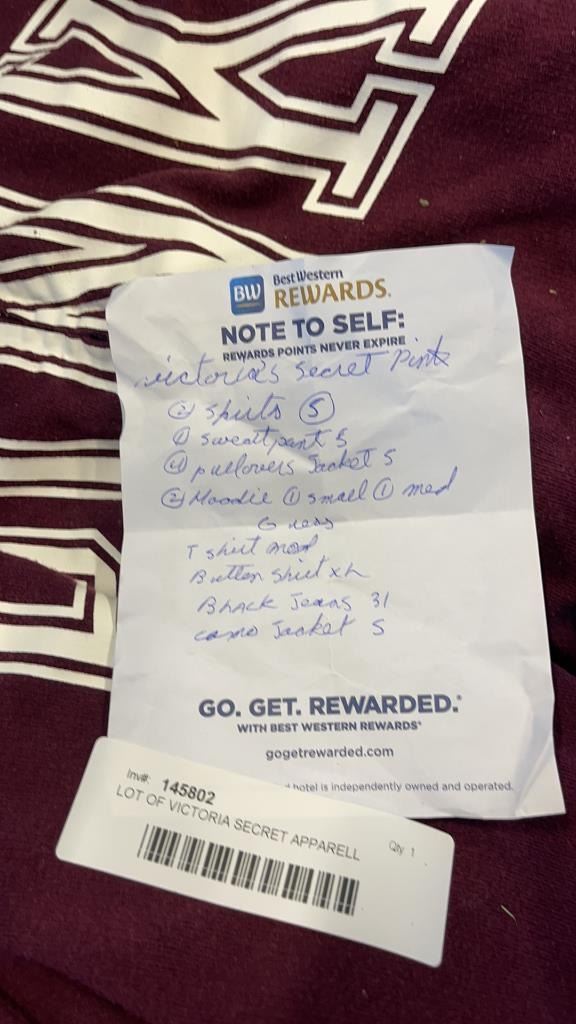 BW Best Western
REWARDS.
NOTE TO SELF:
REWARDS POINTS NEVER EXPIRE
victoria's Secret Pink
② Shirts Ⓢ
① sweatpant S
④ pullovers Jacket S
② Hoodie ① small ① med
Guess
T shirt med
Button Shirt XL
BLACK Jeans 31
camo Jacket S
GO. GET. REWARDED.®
WITH BEST WESTERN REWARDS®
gogetrewarded.com
hotel is independently owned and operated.
Inv#: 145802
LOT OF VICTORIA SECRET APPARELL Qty 1